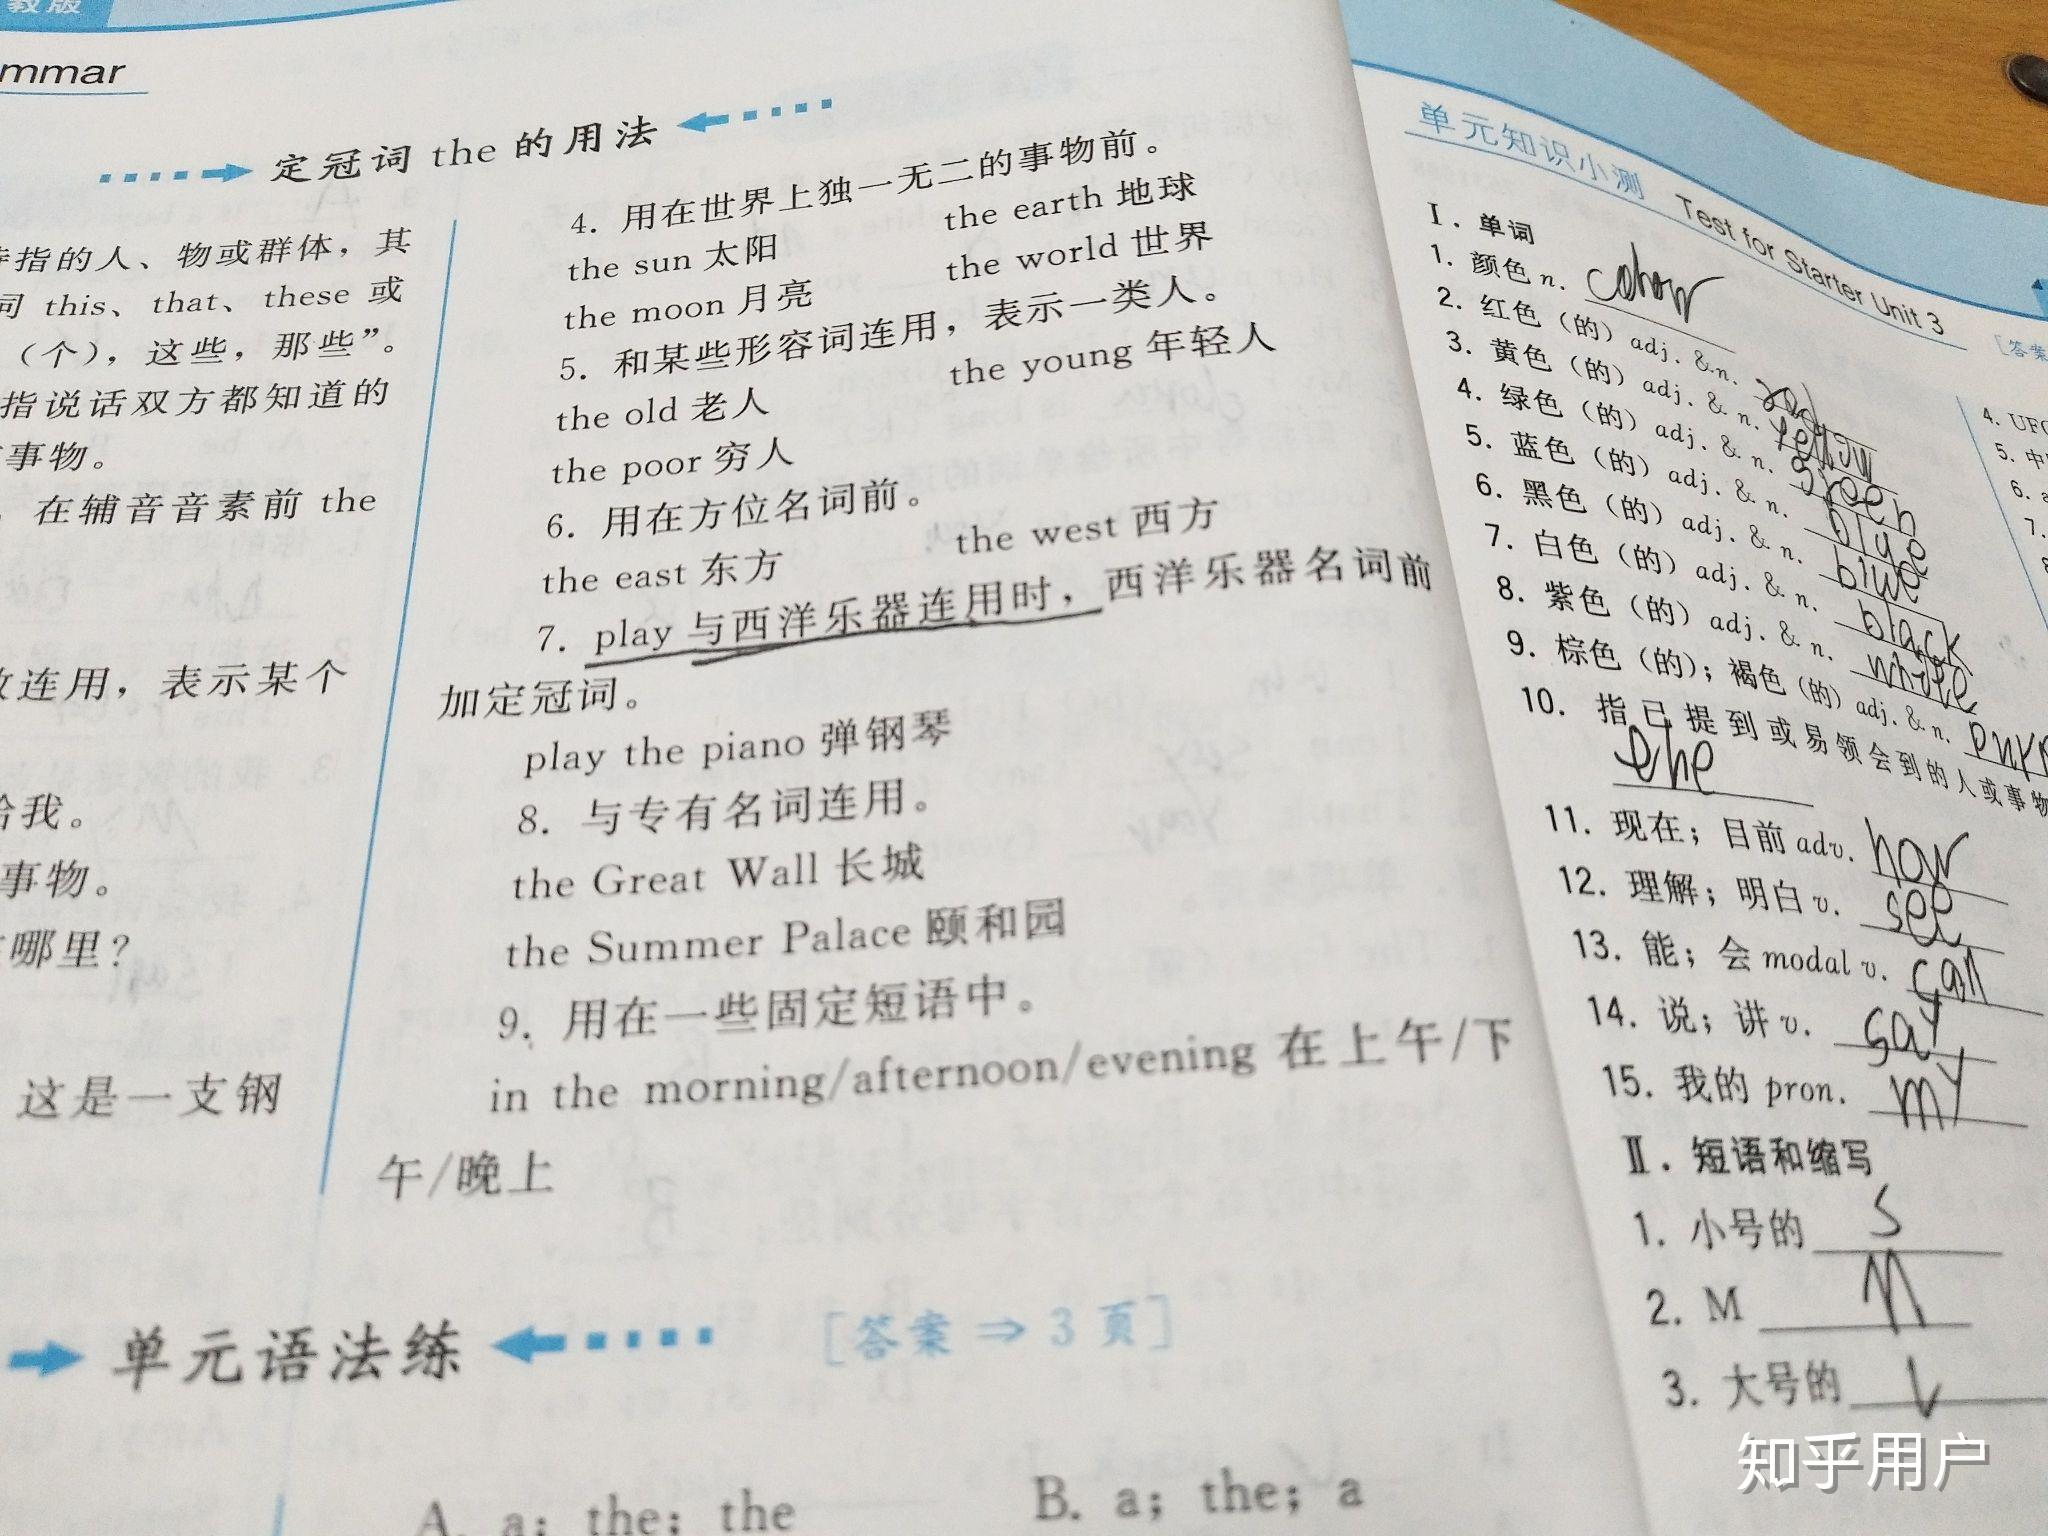 教版
mmar
定冠词 the 的用法
指的人、物或群体，其
this、that、these 或
（个），这些，那些”。
指说话双方都知道的
事物。
在辅音音素前 the
连用，表示某个
给我。
事物。
哪里？
这是一支钢
4. 用在世界上独一无二的事物前。
the sun 太阳 the earth 地球
the moon 月亮 the world 世界
5. 和某些形容词连用，表示一类人。
the old 老人 the young 年轻人
the poor 穷人
6. 用在方位名词前。
the east 东方 the west 西方
7. play 与西洋乐器连用时，西洋乐器名词前
加定冠词。
play the piano 弹钢琴
8. 与专有名词连用。
the Great Wall 长城
the Summer Palace 颐和园
9. 用在一些固定短语中。
in the morning/afternoon/evening 在上午/下
午/晚上
单元语法练 [答案⇒3页]
A. a; the; the B. a; the; a
单元知识小测 Test for Starter Unit 3
[答案
Ⅰ. 单词
1. 颜色 n.
2. 红色（的）adj. & n.
3. 黄色（的）adj. & n.
4. 绿色（的）adj. & n. green
5. 蓝色（的）adj. & n. blue
6. 黑色（的）adj. & n. blue
7. 白色（的）adj. & n. black
8. 紫色（的）adj. & n. white
9. 棕色（的）；褐色（的）adj. & n.
10. 指已提到或易领会到的人或事物
11. 现在；目前 adv.
12. 理解；明白 v. see
13. 能；会 modal v. can
14. 说；讲 v. say
15. 我的 pron. my
Ⅱ. 短语和缩写
1. 小号的 S
2. M
3. 大号的 L
4. UFO
5. 中
6. a
7.
知乎用户